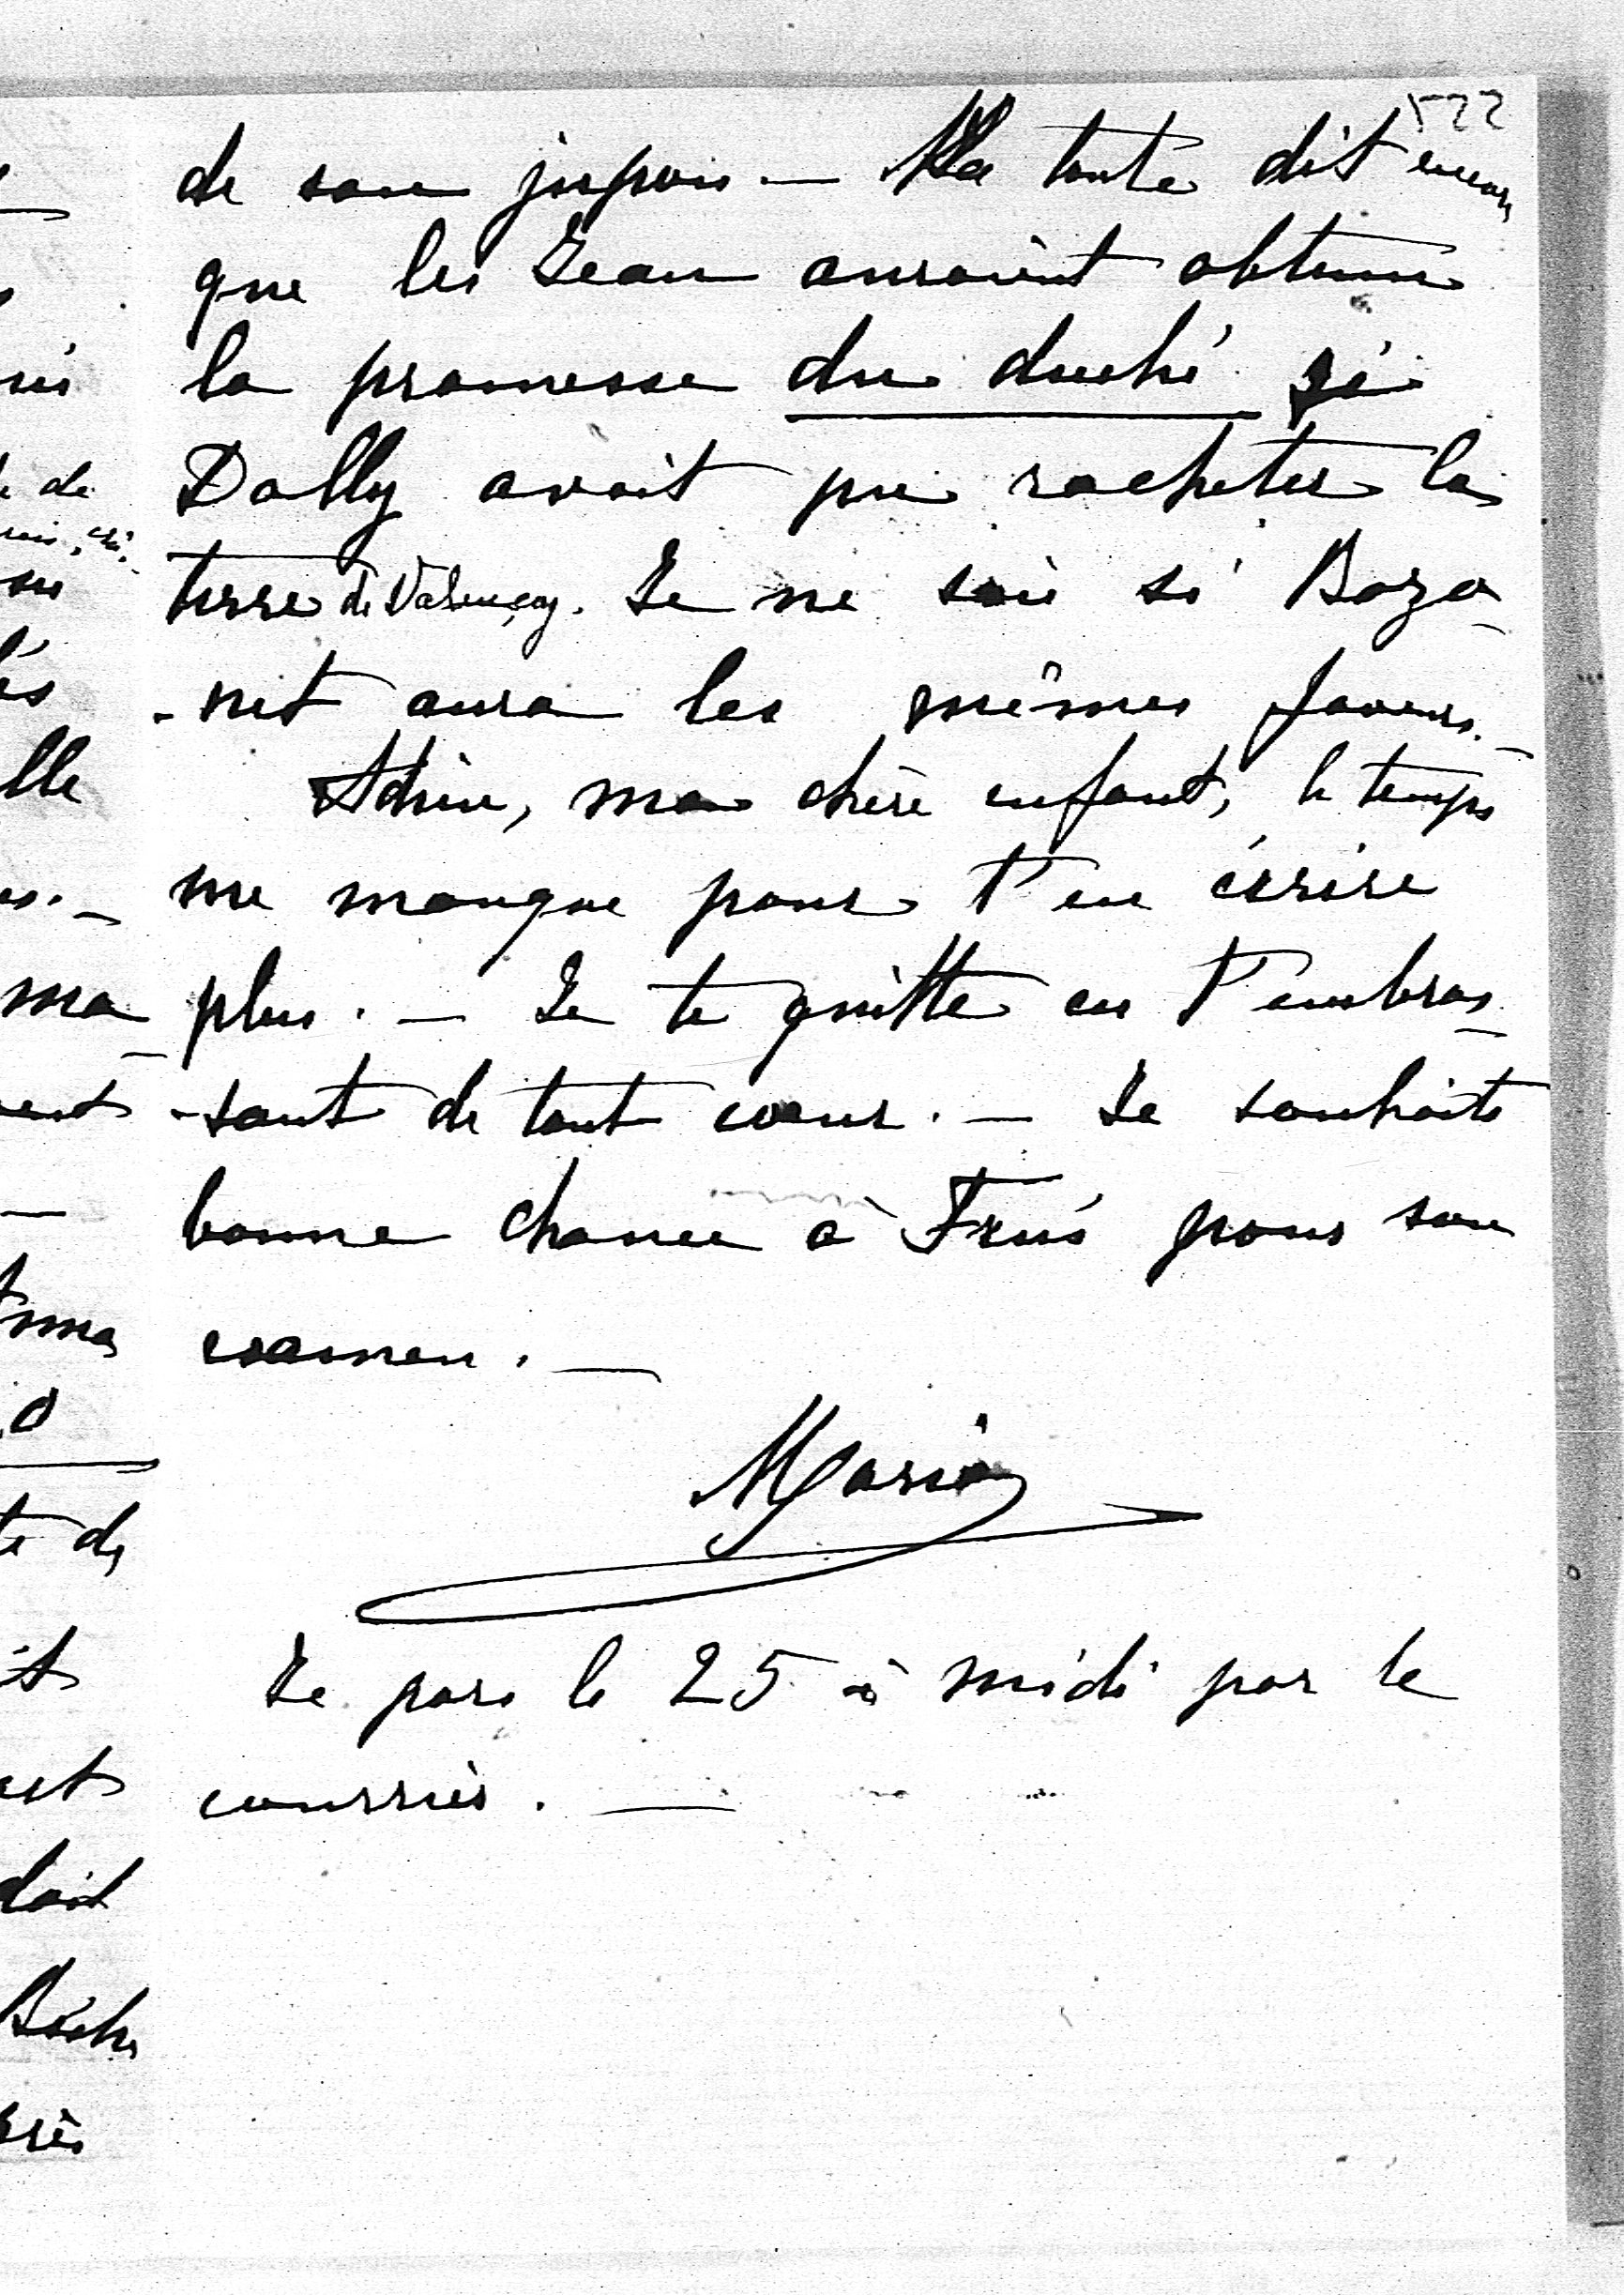 522
de son jupon. — Ma tante dit encore
que les Jean auraient obtenu
la promesse du duché si
Dolly avait pu racheter la
terre de Valençay. Je ne sais si Boza
-net aura les mêmes faveurs. —
Adieu, ma chère enfant, le temps
me manque pour t'en écrire
plus. — Je te quitte en t'embras-
-sant de tout cœur. — Je souhaite
bonne chance à pour son
examen. —
Maria
Je pars le 25 à midi par le
courrier. —